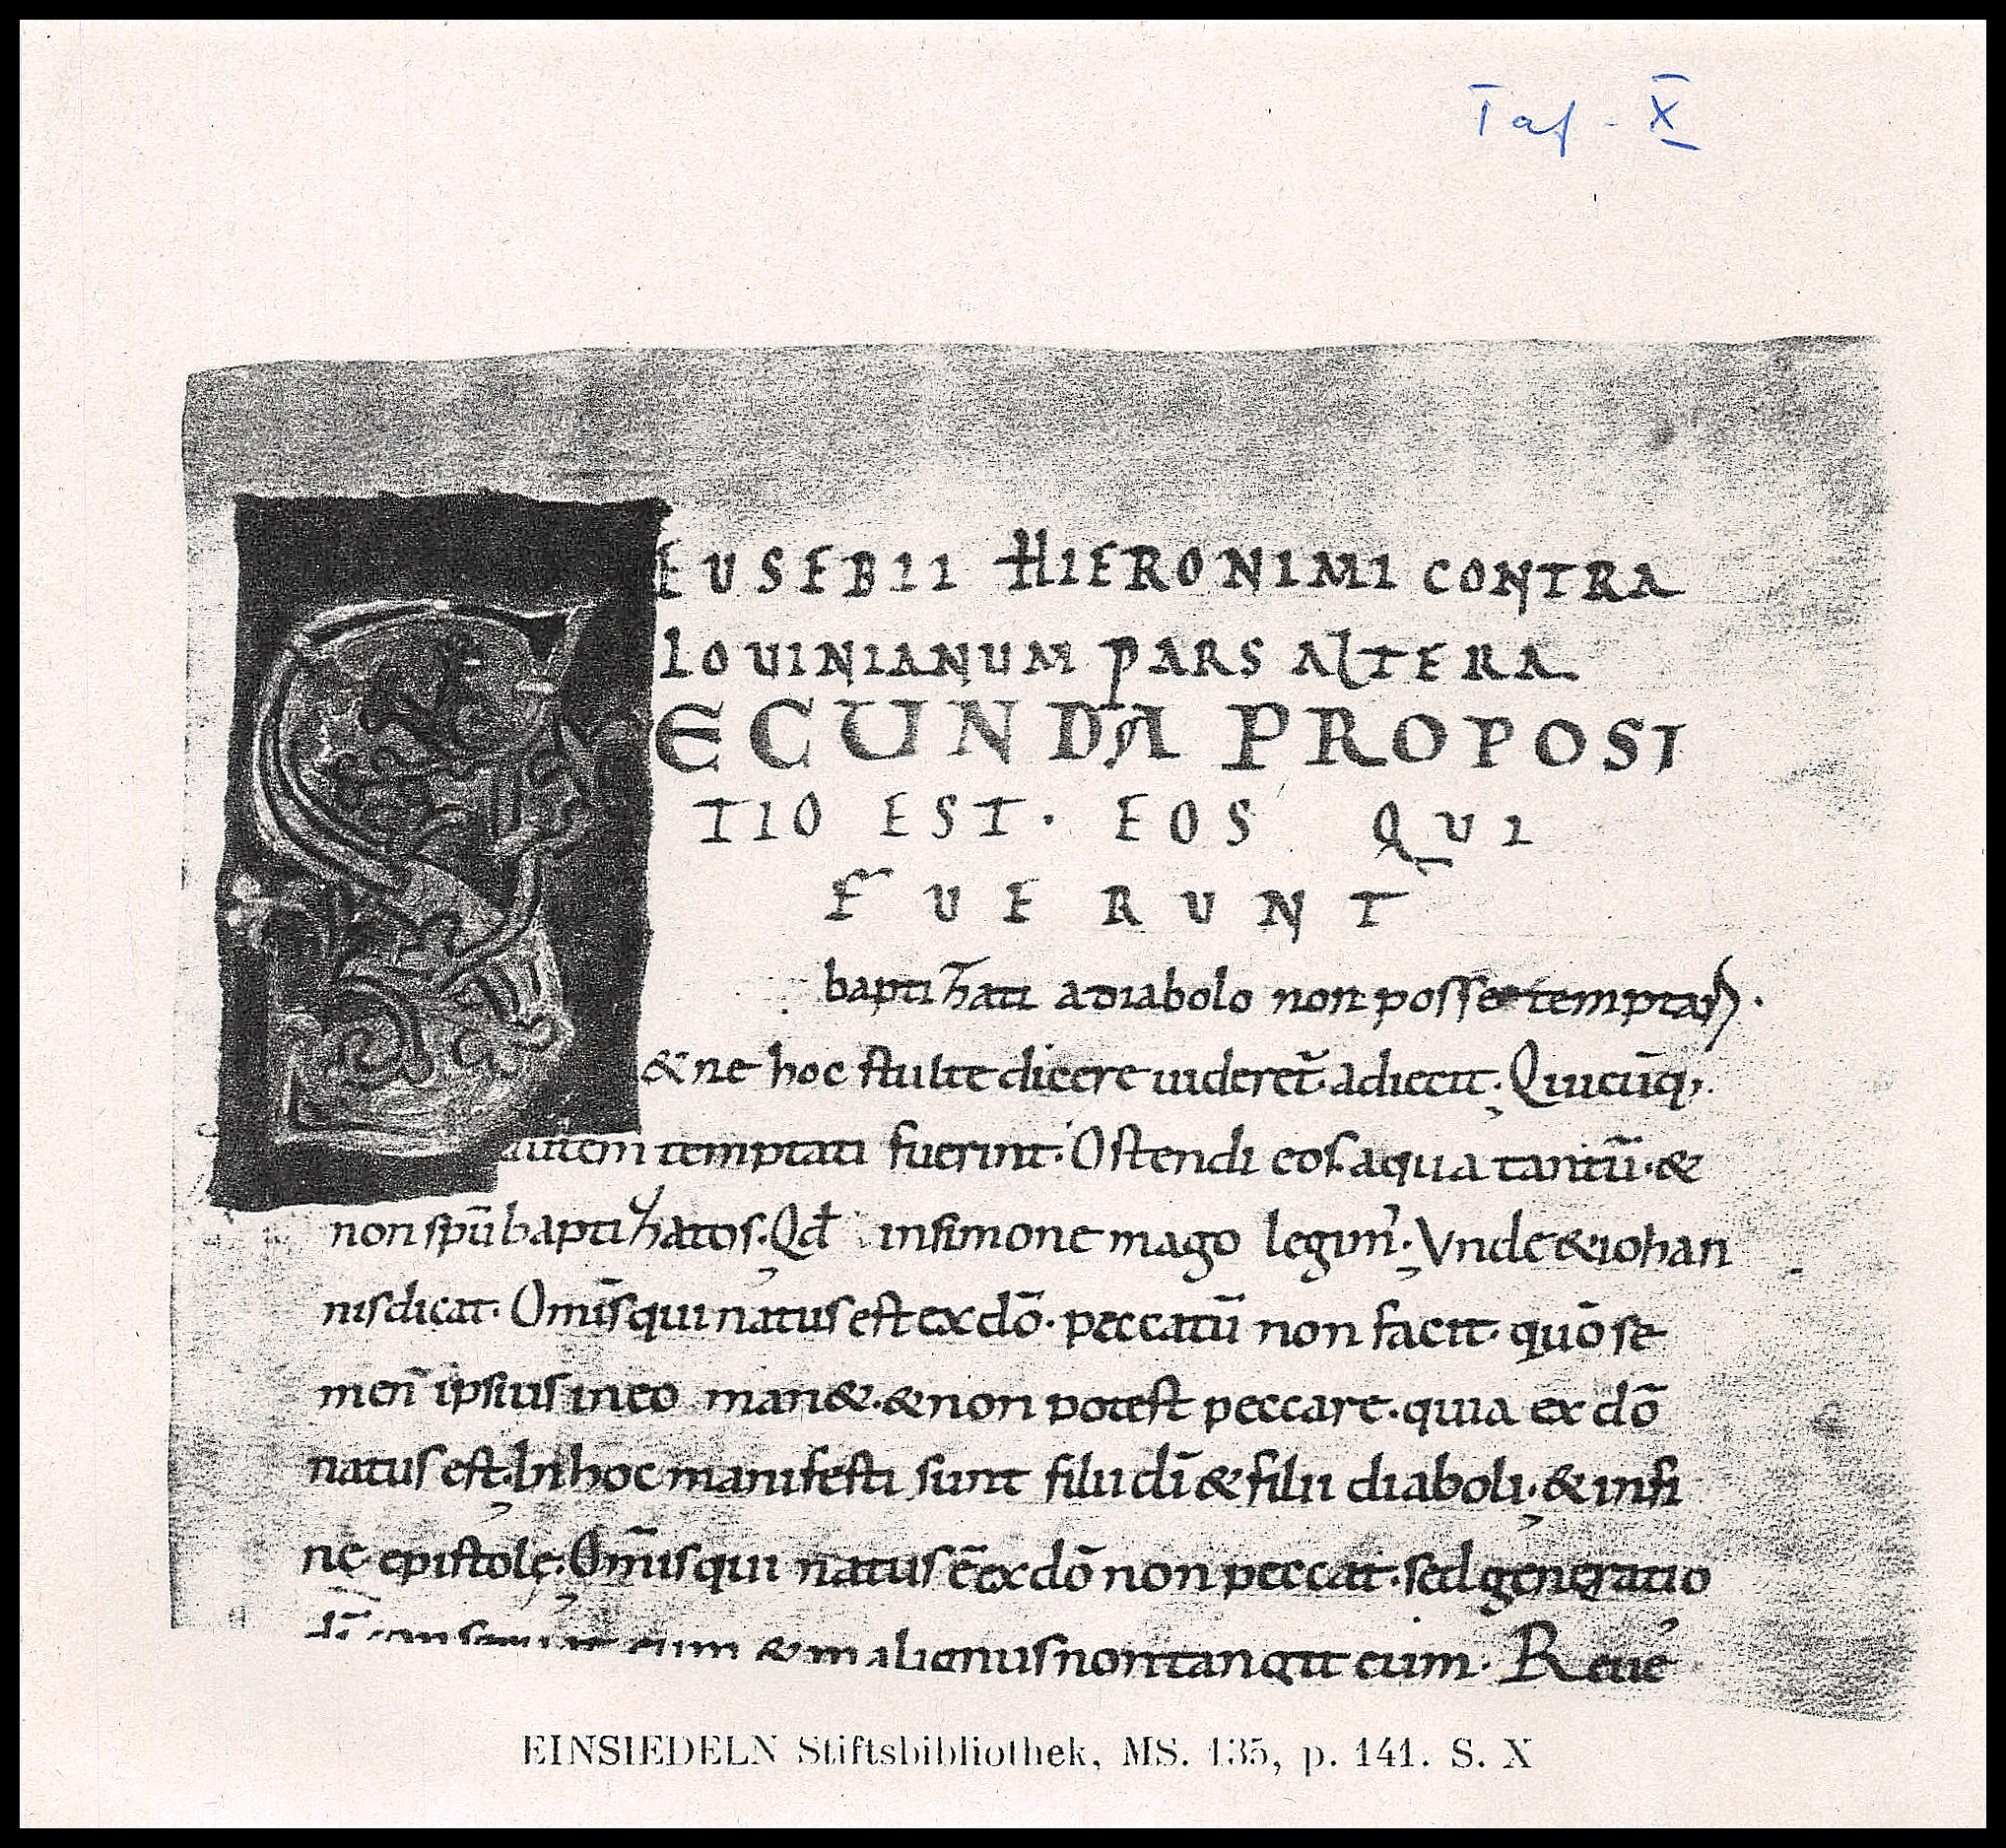 Taf - X
EUSEBII HIERONIMI CONTRA
IOUINIANUM PARS ALTERA
SECUNDA PROPOSI
TIO EST · EOS QUI
FUERUNT
baptizati a diabolo non posse temptari ·
& ne hoc stulte dicere uideret̄ · adiecit · Quicūq;
autem temptati fuerint · Ostendi eos aqua tantū · &
non spū baptizatos · Qđ in simone mago legim̄ · Vnde & iohan
nis dicat · Om̄is qui natus est ex dō · peccatū non facit · quō se
men̄ ipsius in eo man& · & non potest peccare · quia ex dō
natus est · In hoc manifesti sunt filii dī & filii diaboli · & in fi
ne epistolę · Om̄is qui natus ē ex dō non peccat · sed generatio
dī conseruat eum & malignus non tangit eum · Reue
EINSIEDELN Stiftsbibliothek, MS. 135, p. 141. S. X